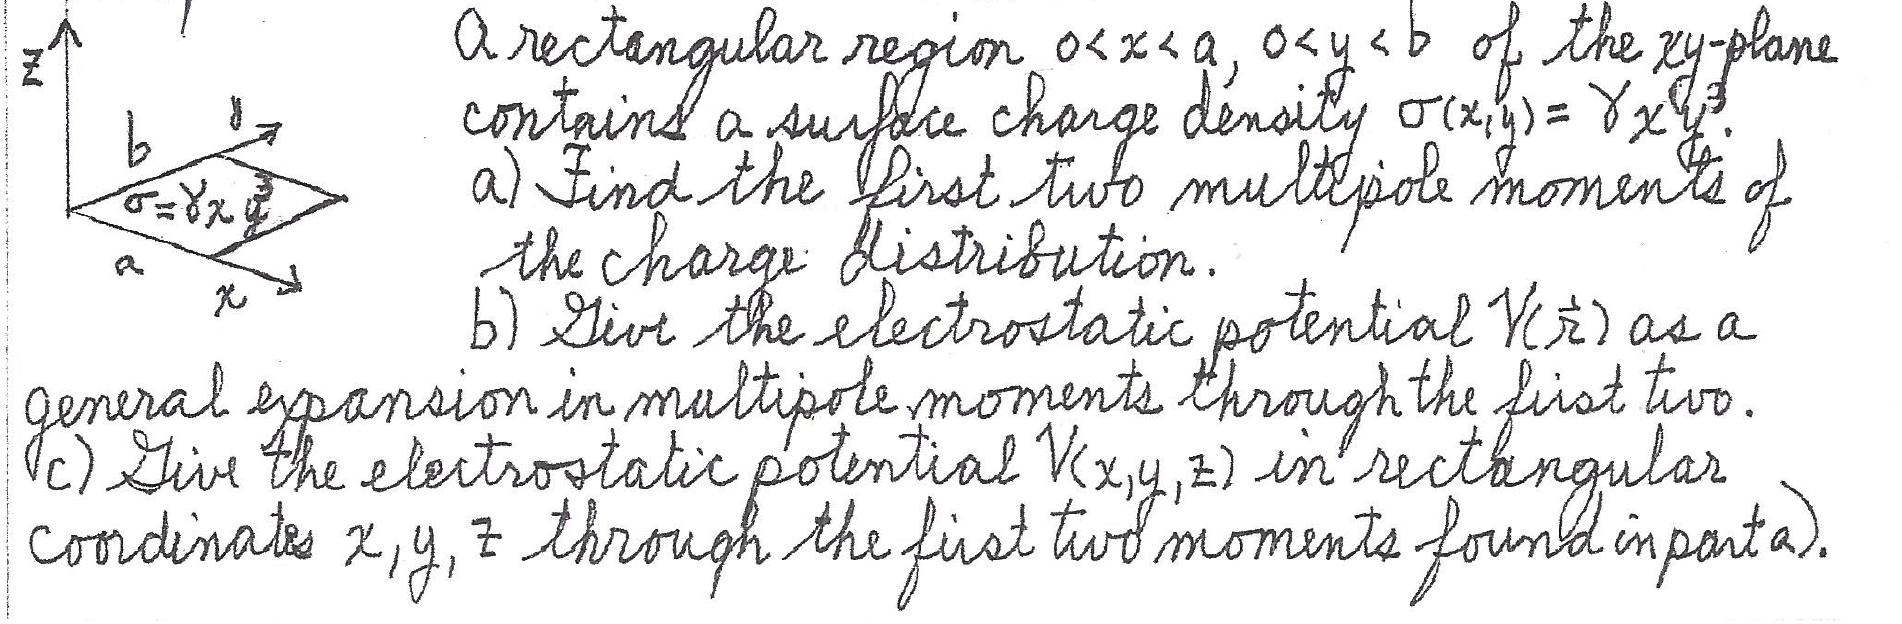 A rectangular region 0<x<a, 0<y<b of the xy-plane
contains a surface charge density σ(x,y) = γxy³.
a) Find the first two multipole moments of
the charge distribution.
b) Give the electrostatic potential V(r⃗) as a
general expansion in multipole moments through the first two.
c) Give the electrostatic potential V(x,y,z) in rectangular
coordinates x, y, z through the first two moments found in part a).
z
b
y
σ=γxy³
a
x